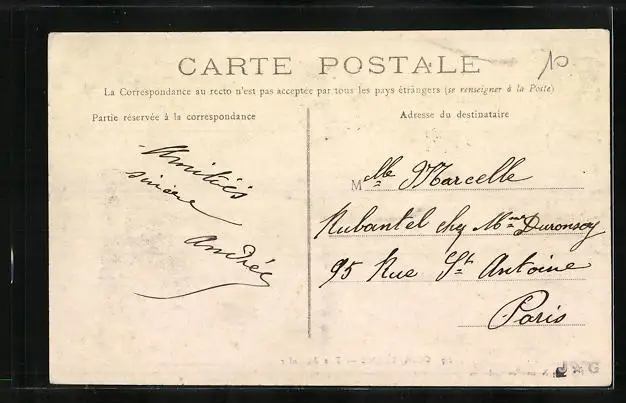 CARTE POSTALE
10
La Correspondance au recto n'est pas acceptée par tous les pays étrangers (se renseigner à la Poste)
Partie réservée à la correspondance
Adresse du destinataire
Amitiés
sincère
Andrée
Mlle Marcelle
Rubantel chez Mme Duronsoy
95 Rue St Antoine
Paris